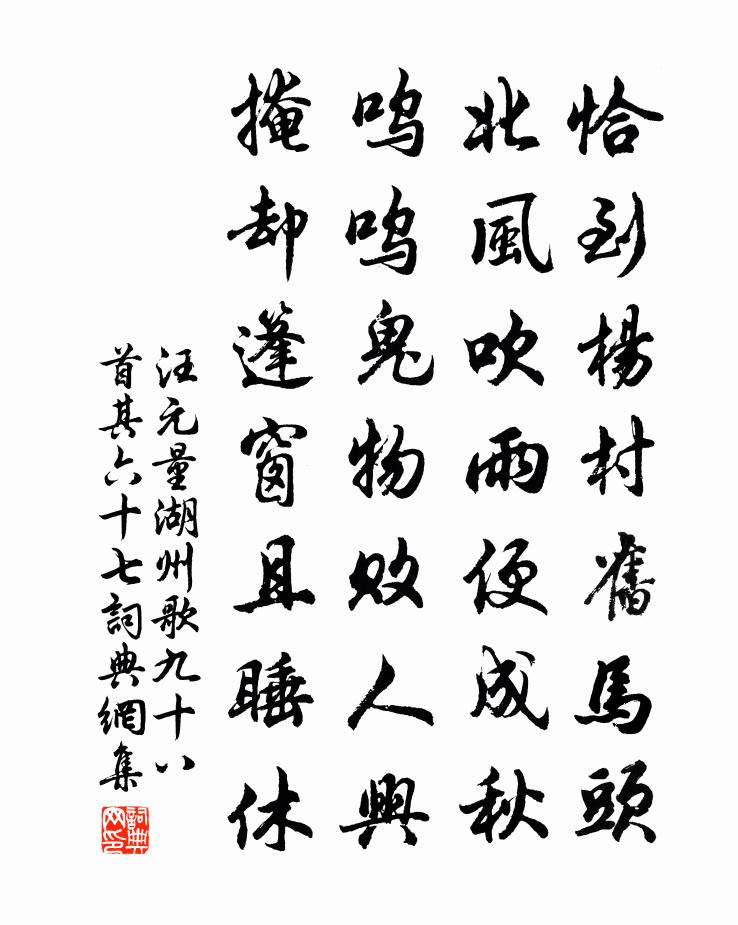 恰到楊村舊馬頭
北風吹雨便成秋
嗚嗚鬼物敗人興
掩却篷窗且睡休
汪元量湖州歌九十八
首其六十七詞典網集
詞典
网印